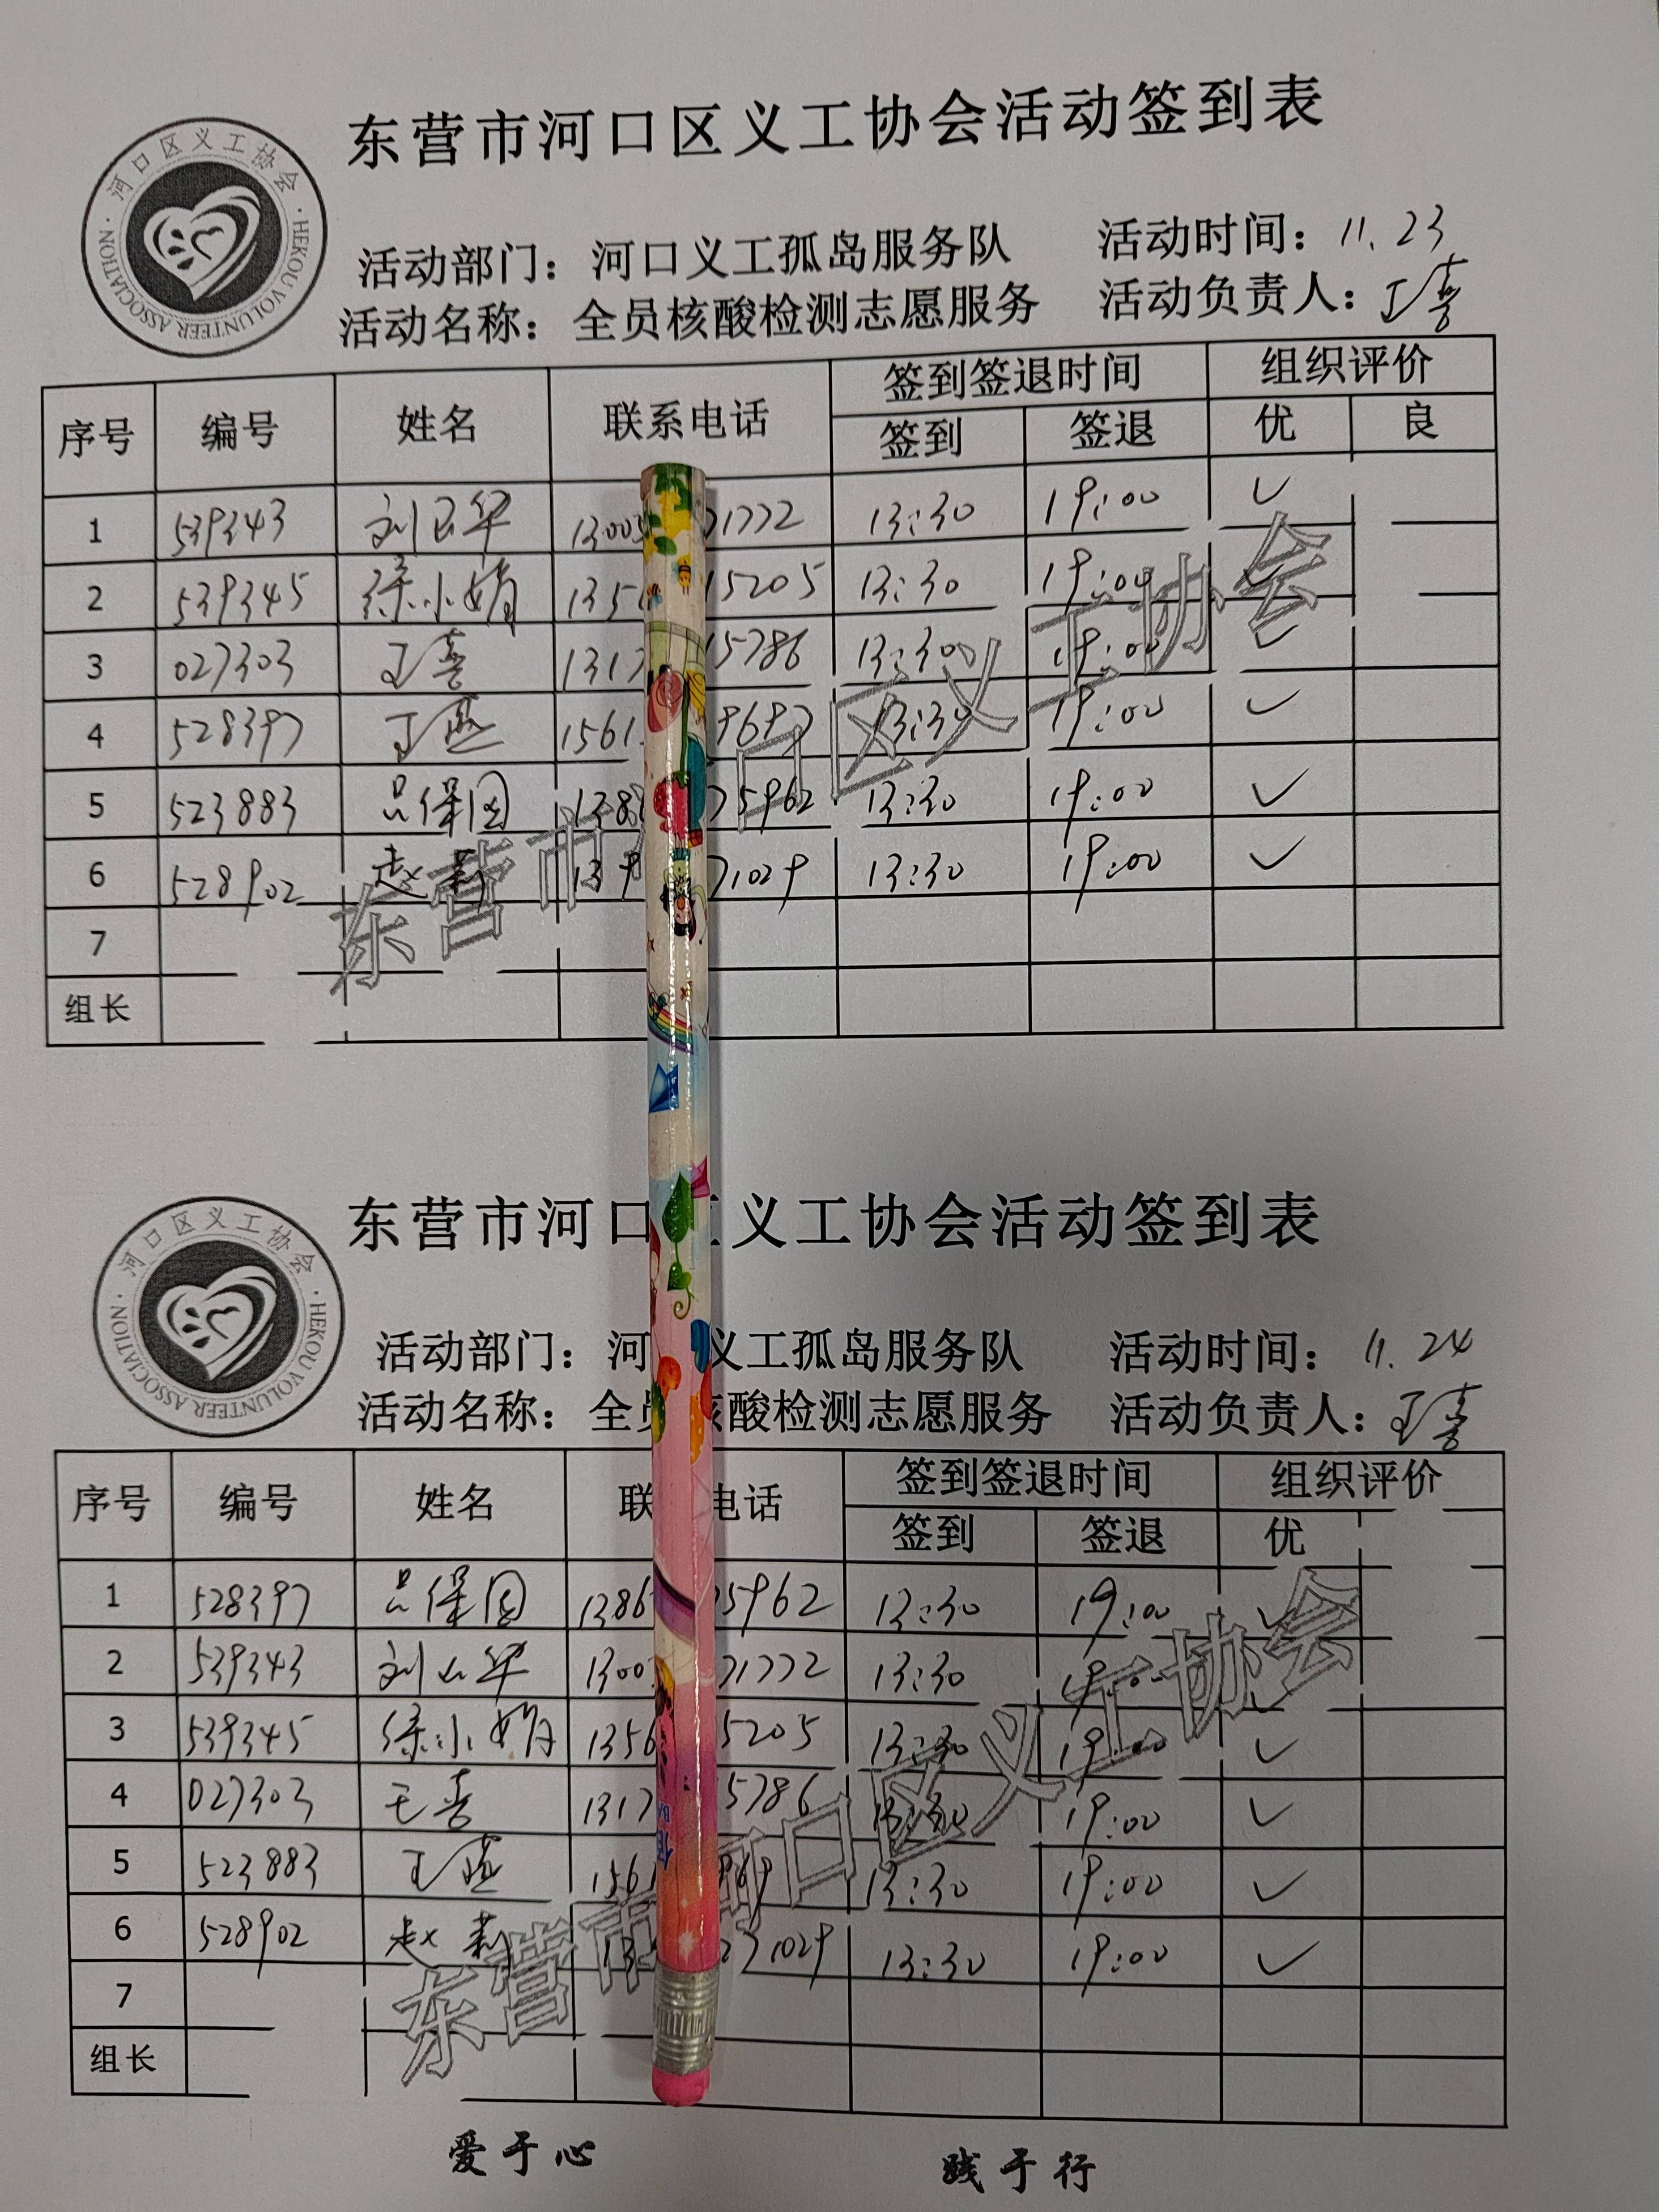 东营市河口区义工协会活动签到表
河口区义工协会
HEKOU VOLUNTEER ASSOCIATION
活动部门：河口义工孤岛服务队 活动时间：11.23
活动名称：全员核酸检测志愿服务 活动负责人：王喜
序号 编号 姓名 联系电话 签到签退时间 组织评价
签到 签退 优 良
1 539343 刘 华 13003 71772 13:30 19:00 ✓
2 539345 徐小娟 135 15205 13:30 19:00 ✓
3 027303 王喜 1317 15786 13:30 19:00 ✓
4 528397 王燕 1561 9697 13:30 19:00 ✓
5 523883 吕保国 138 75962 13:30 19:00 ✓
6 528902 赵莉 139 71029 13:30 19:00 ✓
7
组长
东营市 口区义工协会
东营市河口 义工协会活动签到表
河口区义工协会
HEKOU VOLUNTEER ASSOCIATION
活动部门：河 义工孤岛服务队 活动时间：11.24
活动名称：全员核酸检测志愿服务 活动负责人：王喜
序号 编号 姓名 联 电话 签到签退时间 组织评价
签到 签退 优
1 528397 吕保国 1386 75962 13:30 19:00 ✓
2 539343 刘 华 1300 71772 13:30 19:00 ✓
3 539345 徐小娟 1356 5205 13:30 19:00 ✓
4 027303 王喜 1317 15786 13:30 19:00 ✓
5 523883 王燕 1561 969 13:30 19:00 ✓
6 528902 赵莉 13 271029 13:30 19:00 ✓
7
组长
东营市河口区义工协会
爱于心 践于行